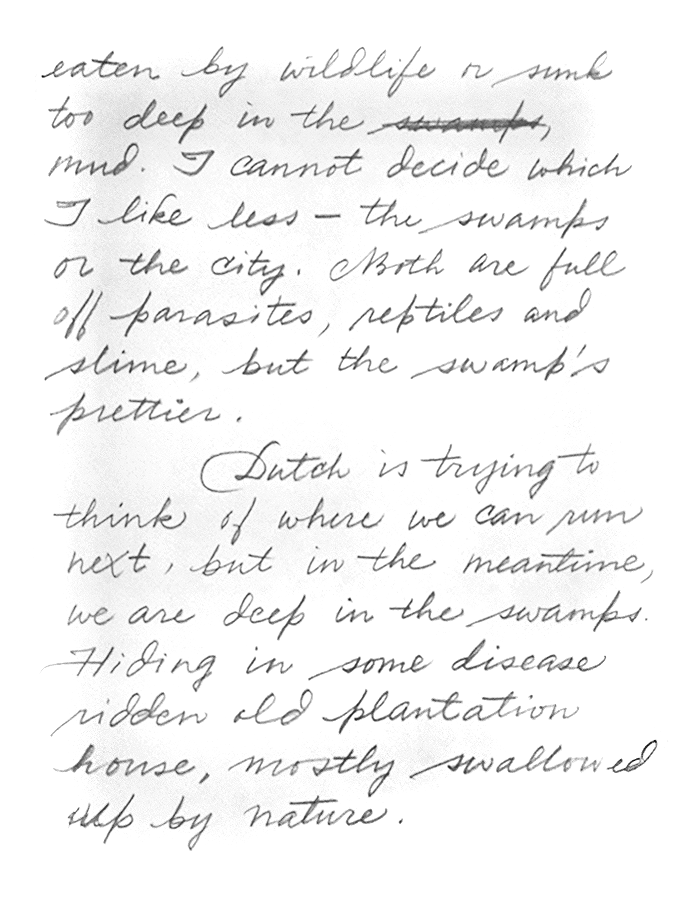 eaten by wildlife or sunk
too deep in the swamps,
mud. I cannot decide which
I like less – the swamps
or the city. Both are full
off parasites, reptiles and
slime, but the swamp's
prettier.
Dutch is trying to
think of where we can run
next, but in the meantime,
we are deep in the swamps.
Hiding in some disease
ridden old plantation
house, mostly swallowed
up by nature.